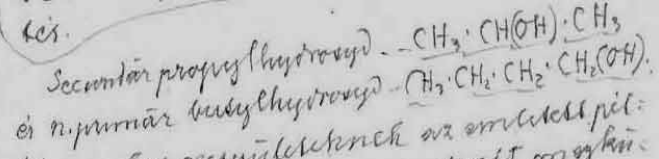 tés.
Secundär propylhydroxyd. - CH₃·CH(OH)·CH₃
és n.primär butylhydroxyd - CH₃·CH₂·CH₂·CH₂(OH).
az emlitett pél: